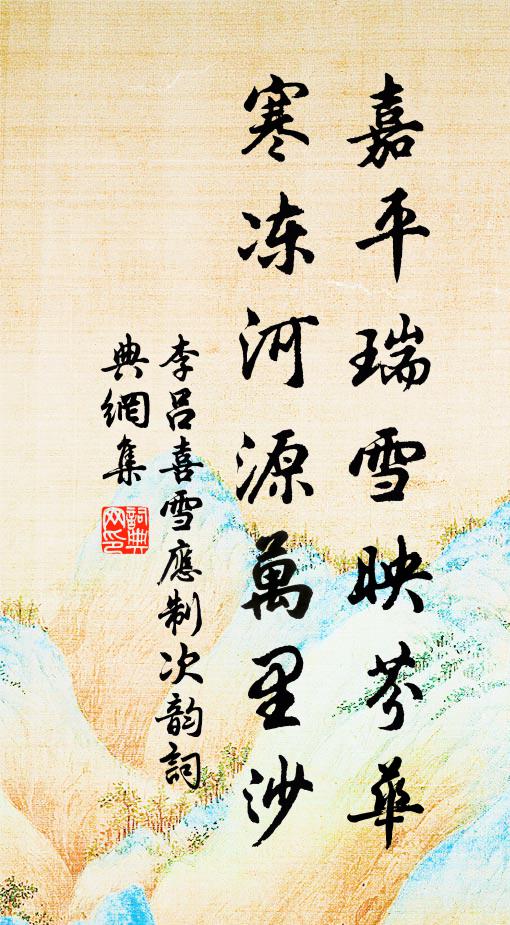 嘉平瑞雪映芬華
寒凍河源萬里沙
李呂喜雪應制次韵詞
典網集
詞典網印